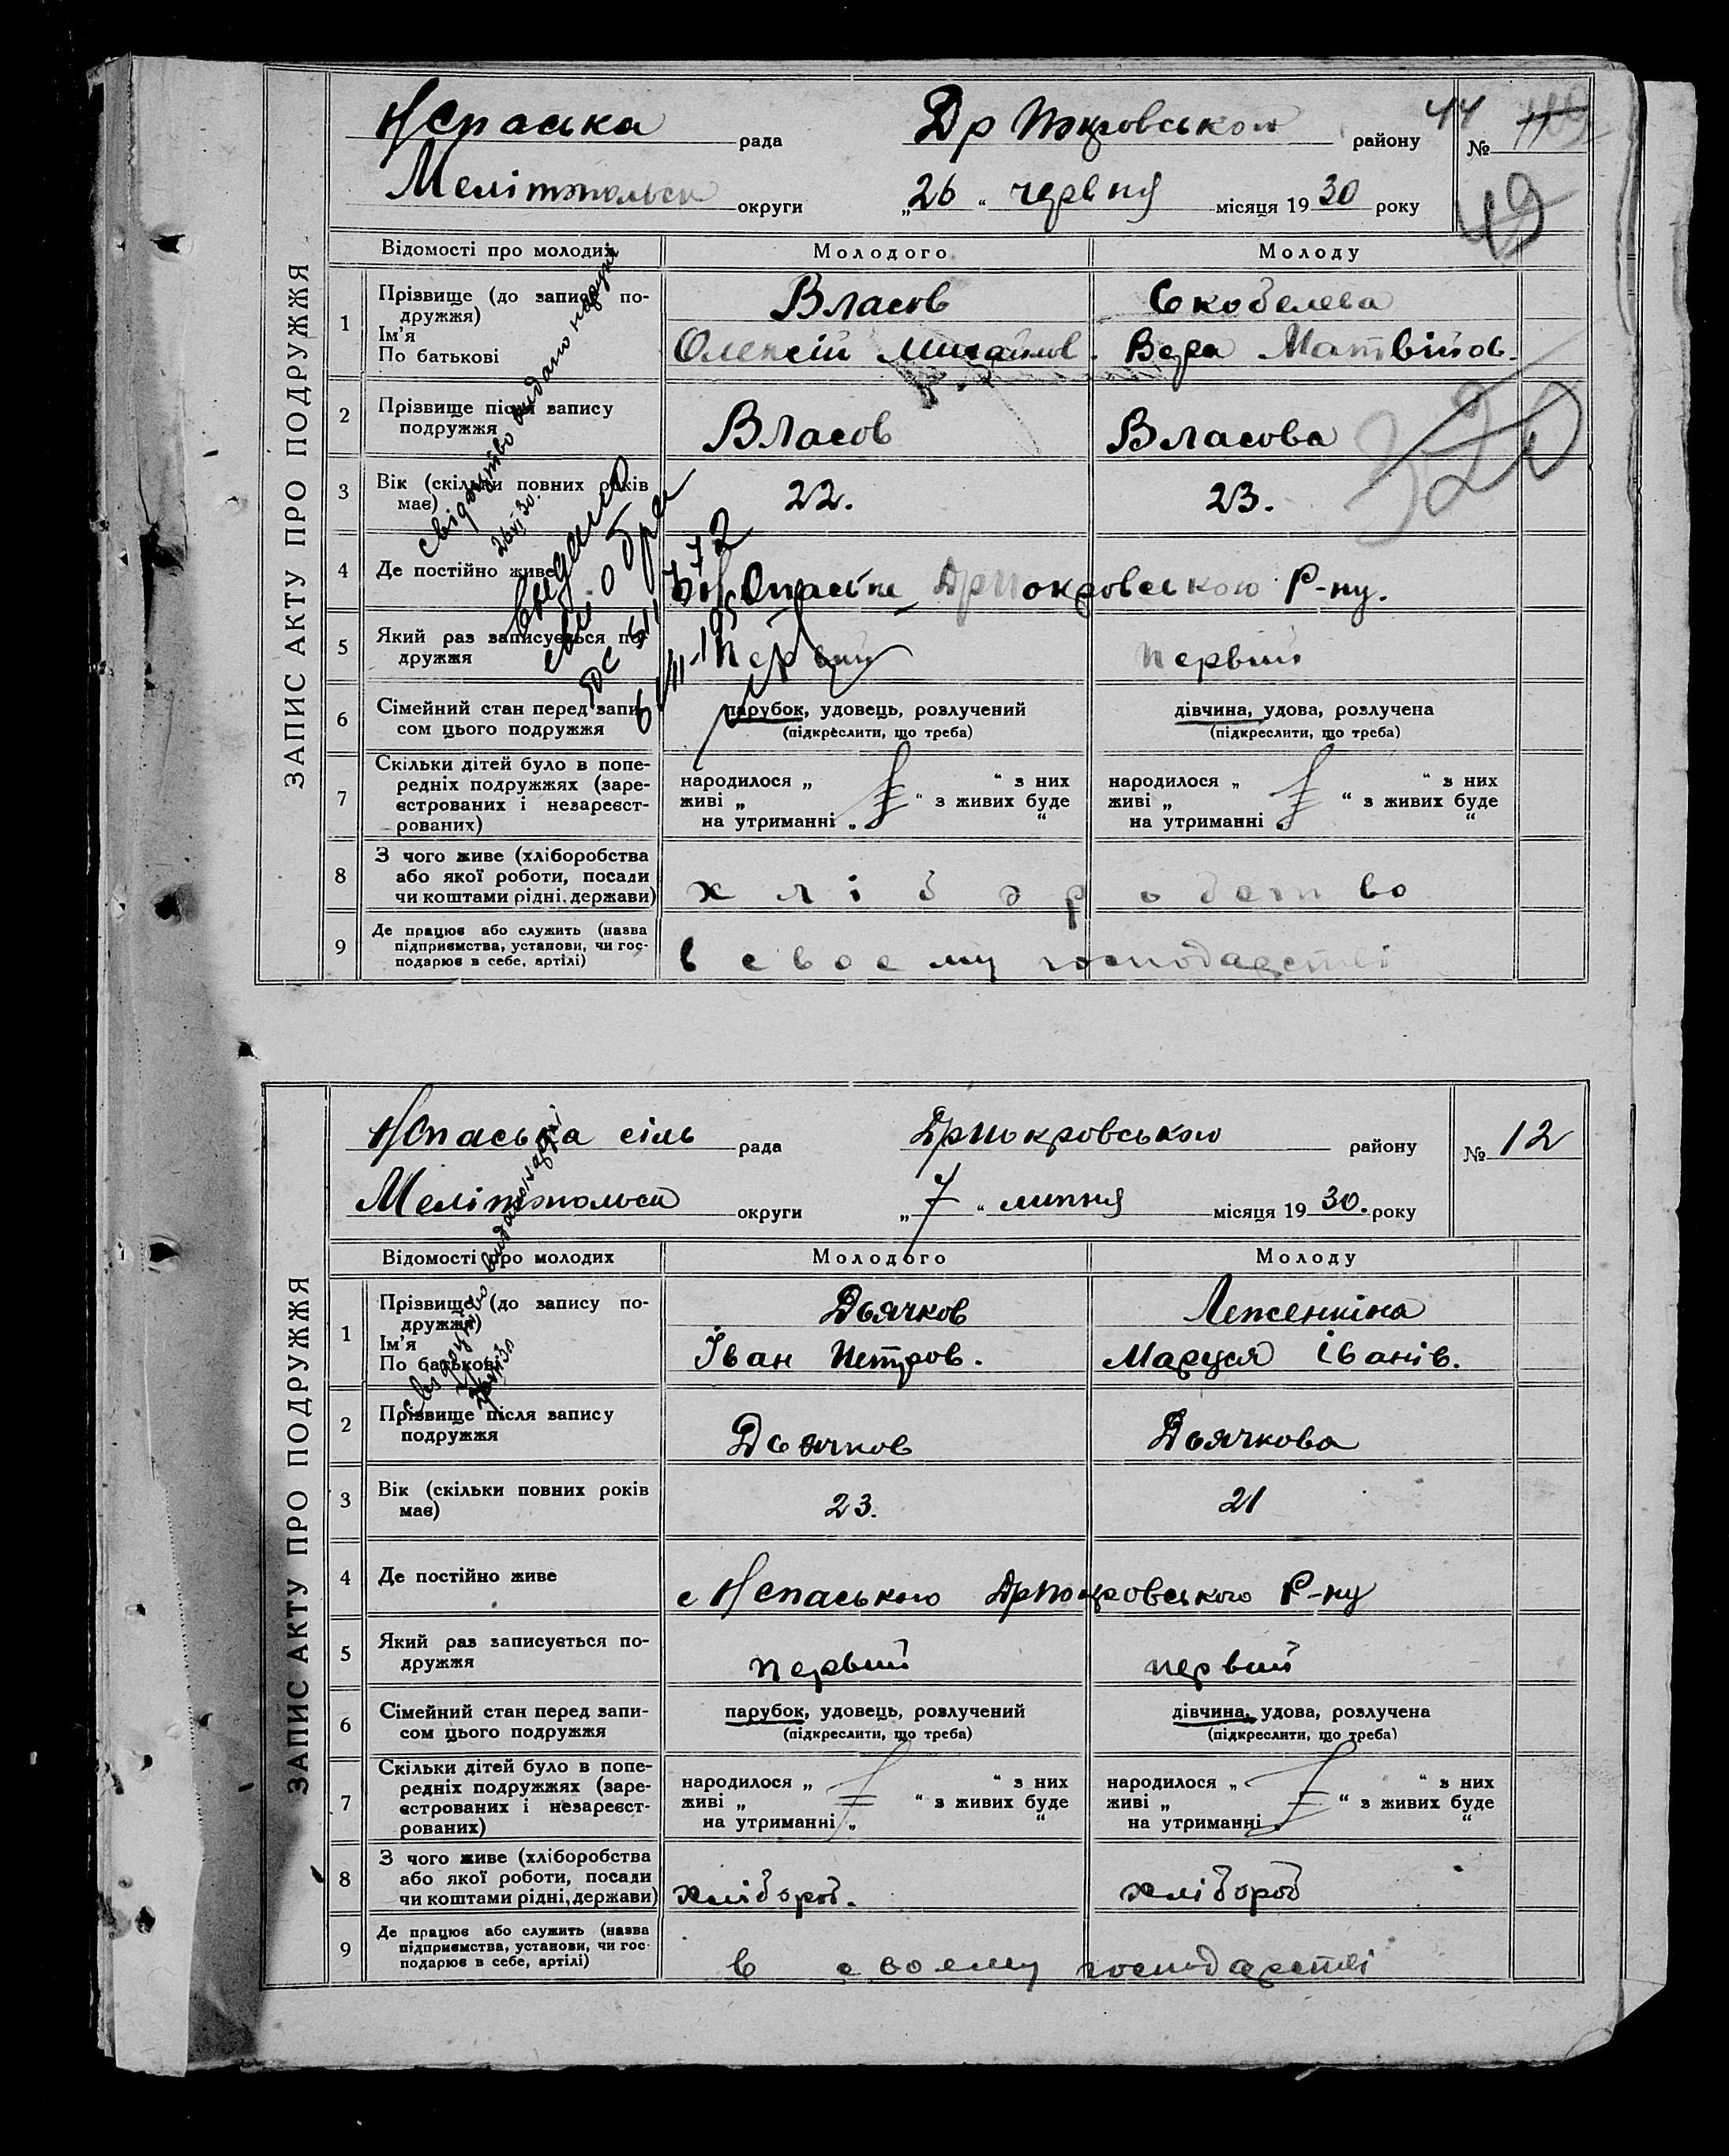 ЗАПИС АКТУ ПРО ПОДРУЖЖЯ
НСпаська рада ДрПокровського району 44 №
Мелітопольск округи „26“ червня місяця 1930 року 49
Відомості про молодих Молодого Молоду
1 Прізвище (до запису по-
дружжя)
Ім'я
По батькові
Власов Скобелева
Олексій Михайлов. Вера Матвійов.
2 Прізвище після запису
подружжя
Власов Власова
320
3 Вік (скільки повних років
має)
22. 23.
4 Де постійно живе
НСпаське ДрПокровського Р-ну.
5 Який раз записується по-
дружжя
первий первий
6 Сімейний стан перед запи-
сом цього подружжя
парубок, удовець, розлучений дівчина, удова, розлучена
(підкреслити, що треба) (підкреслити, що треба)
7 Скільки дітей було в попе-
редніх подружжях (заре-
єстрованих і незареєст-
рованих)
народилося „ “ з них народилося „ “ з них
живі „ “ з живих буде живі „ “ з живих буде
на утриманні „ “ на утриманні „ “
8 З чого живе (хліборобства
або якої роботи, посади
чи коштами рідні, держави)
хліборобство
9 Де працює або служить (назва
підприємства, установи, чи гос-
подарює в себе, артілі)
в своему господарстві
Свідоцтво видано
26/VI 30.
выдано
св. о браке
ЗАПИС АКТУ ПРО ПОДРУЖЖЯ
НСпаська сіль рада ДрПокровського району № 12
Мелітопольск округи „7“ липня місяця 1930. року
Відомості про молодих Молодого Молоду
1 Прізвище (до запису по-
дружжя)
Ім'я
По батькові
Дьячков Леженкіна
Іван Петров. Маруся Іванів.
2 Прізвище після запису
подружжя
Дьячков Дьячкова
3 Вік (скільки повних років
має)
23. 21
4 Де постійно живе
с НСпаського ДрПокровського Р-ну
5 Який раз записується по-
дружжя
первий первий
6 Сімейний стан перед запи-
сом цього подружжя
парубок, удовець, розлучений дівчина, удова, розлучена
(підкреслити, що треба) (підкреслити, що треба)
7 Скільки дітей було в попе-
редніх подружжях (заре-
єстрованих і незареєст-
рованих)
народилося „ “ з них народилося „ “ з них
живі „ “ з живих буде живі „ “ з живих буде
на утриманні „ “ на утриманні „ “
8 З чого живе (хліборобства
або якої роботи, посади
чи коштами рідні, держави)
хлібороб. хлібороб
9 Де працює або служить (назва
підприємства, установи, чи гос-
подарює в себе, артілі)
в своему господарстві